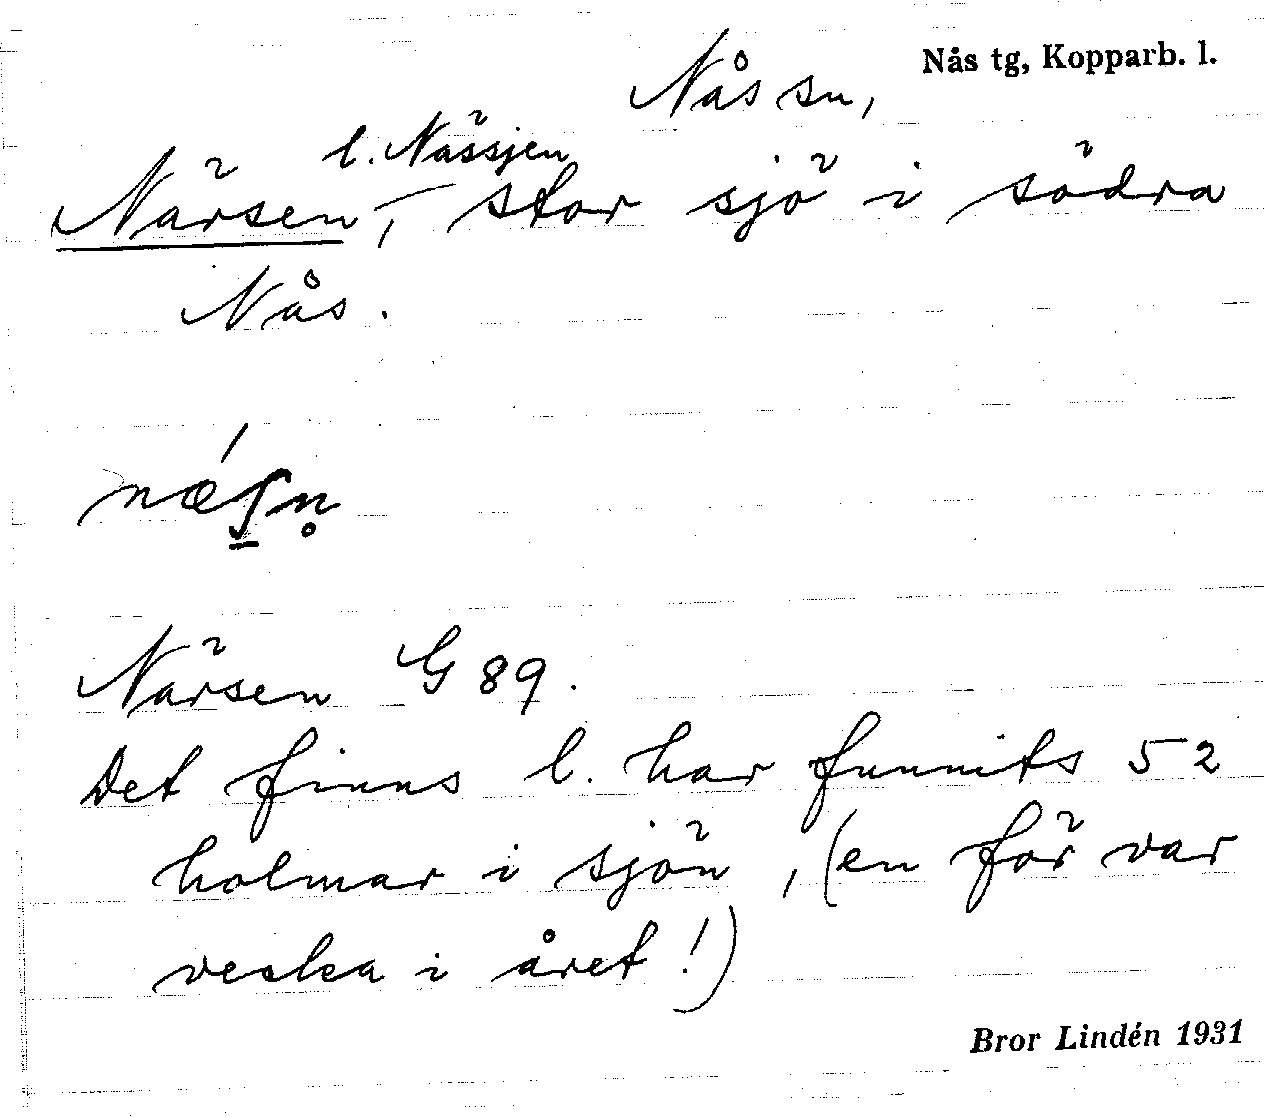 Nås tg, Kopparb. l.
Nås sn,
l. Nässjen
Närsen, stor sjö i södra
Nås.
Närsen G 89.
Det finns l. har funnits 52
holmar i sjön, (en för var
vecka i året!)
Bror Lindén 1931